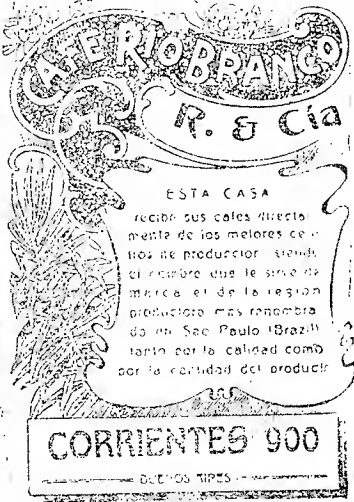 CAFE RIO BRANCO
R. & Cía
ESTA CASA
recibe sus cafes directa-
mente de los mejores cen-
tros de produccion siendo
el nombre que le sirve de
marca el de la region
productora mas renombra-
da en Sao Paulo (Brazil)
tanto por la calidad como
por la cantidad del producto
CORRIENTES 900
BUENOS AIRES